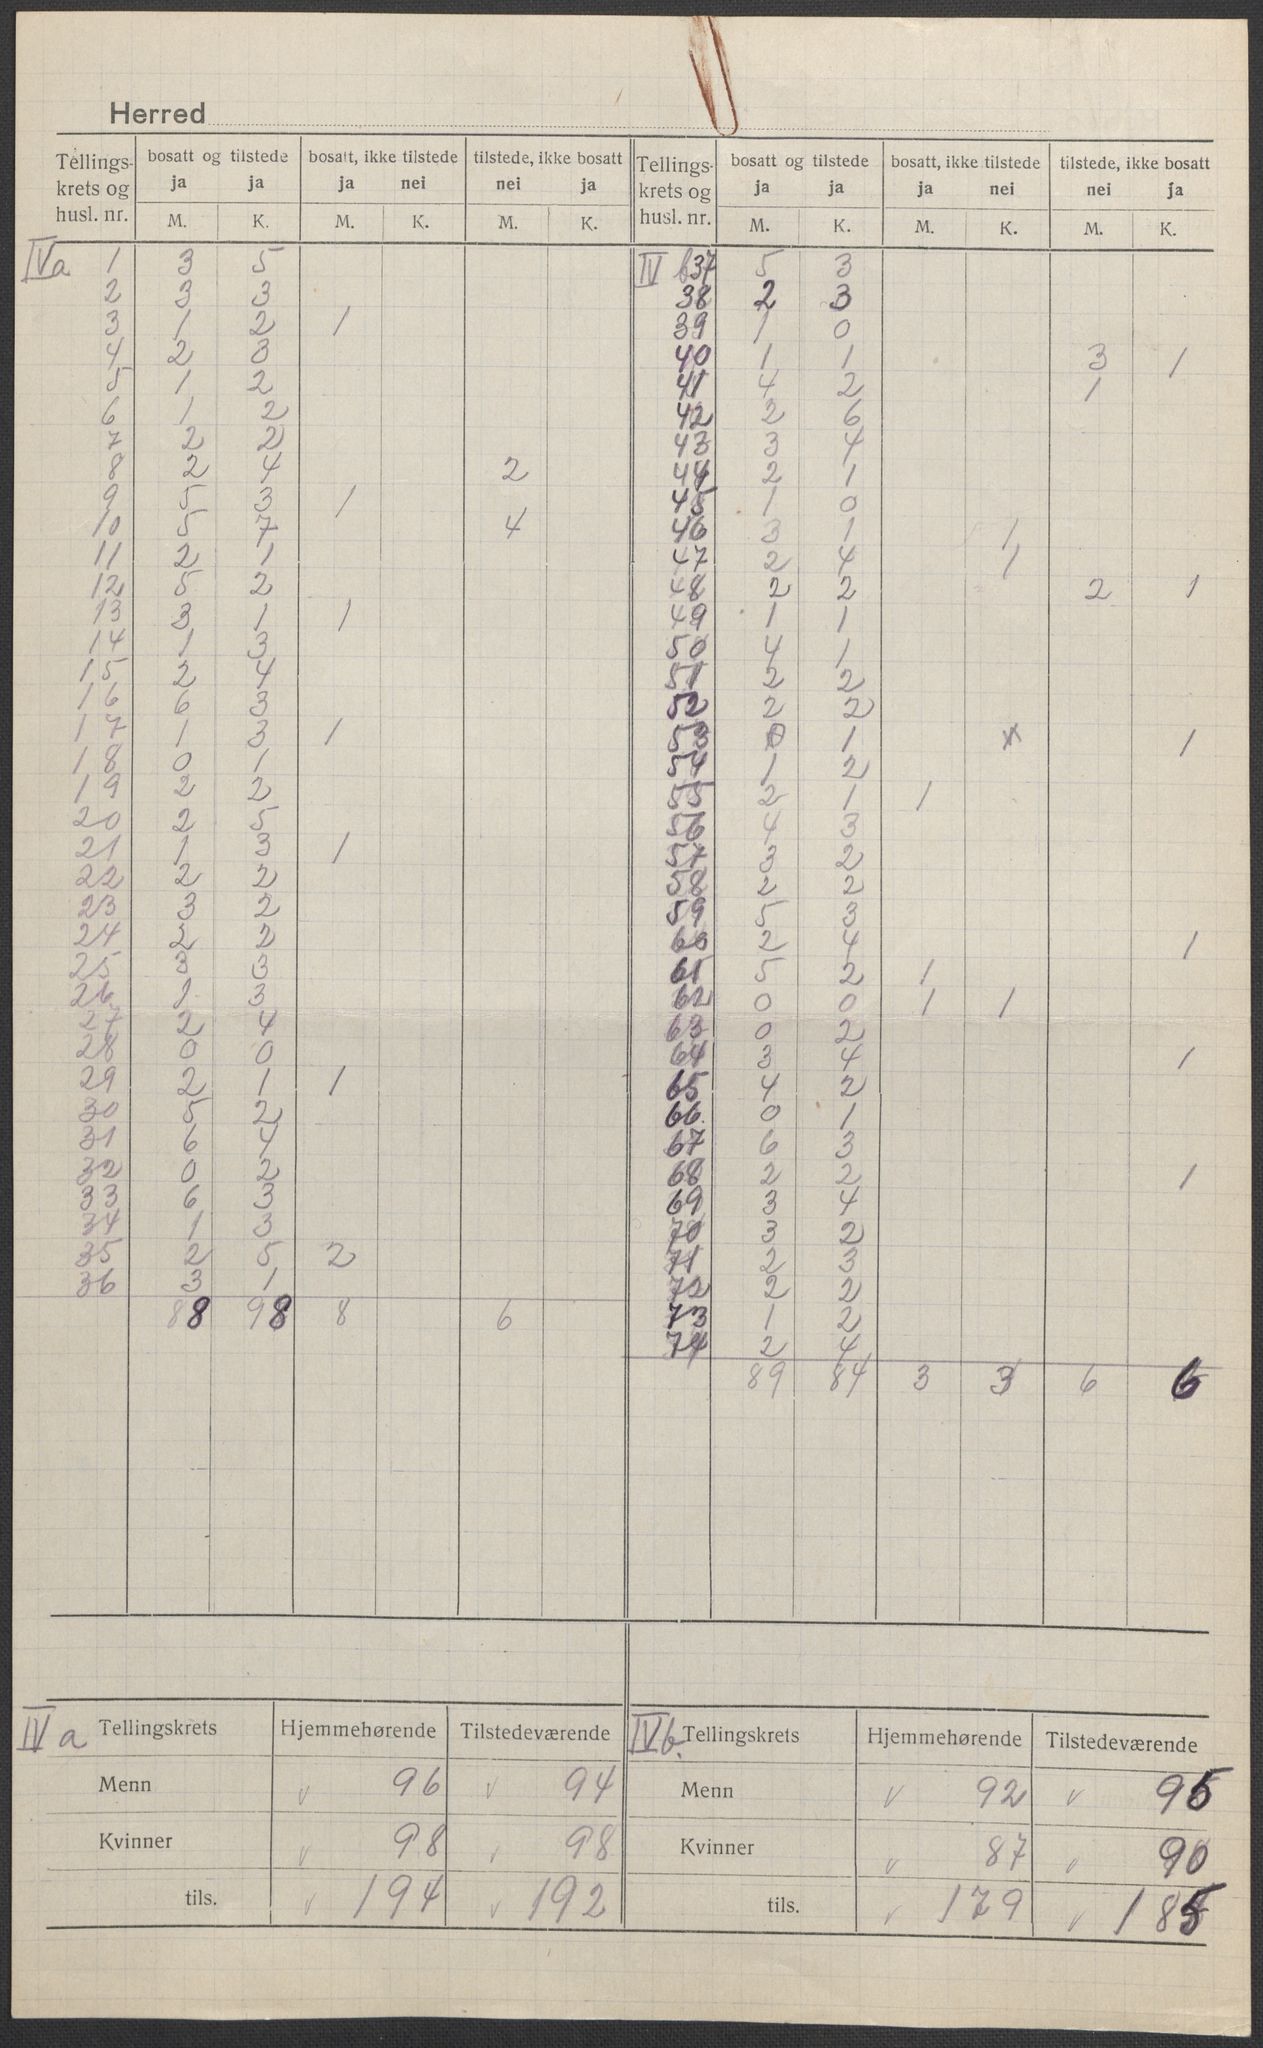 Herred
Tellings-krets og husl. nr. | bosatt og tilstede ja M. | ja K. | bosatt, ikke tilstede ja M. | nei K. | tilstede, ikke bosatt nei M. | ja K. | Tellings-krets og husl. nr. | bosatt og tilstede ja M. | ja K. | bosatt, ikke tilstede ja M. | nei K. | tilstede, ikke bosatt nei M. | ja K.
IVa 1 | 3 | 5 | | | | | IV b 37 | 5 | 3 | | | |
2 | 3 | 3 | | | | | 38 | 2 | 3 | | | |
3 | 1 | 2 | 1 | | | | 39 | 1 | 0 | | | |
4 | 2 | 3 | | | | | 40 | 1 | 1 | | | 3 | 1
5 | 1 | 2 | | | | | 41 | 4 | 2 | | | 1 |
6 | 1 | 2 | | | | | 42 | 2 | 6 | | | |
7 | 2 | 2 | | | | | 43 | 3 | 4 | | | |
8 | 2 | 4 | | | 2 | | 44 | 2 | 1 | | | |
9 | 5 | 3 | 1 | | | | 45 | 1 | 0 | | | |
10 | 5 | 7 | | | 4 | | 46 | 3 | 1 | | 1 | |
11 | 2 | 1 | | | | | 47 | 2 | 4 | | 1 | |
12 | 5 | 2 | | | | | 48 | 2 | 2 | | | 2 | 1
13 | 3 | 1 | 1 | | | | 49 | 1 | 1 | | | |
14 | 1 | 3 | | | | | 50 | 4 | 1 | | | |
15 | 2 | 4 | | | | | 51 | 2 | 2 | | | |
16 | 6 | 3 | | | | | 52 | 2 | 2 | | | |
17 | 1 | 3 | 1 | | | | 53 | 0 | 1 | | | | 1
18 | 0 | 1 | | | | | 54 | 1 | 2 | | | |
19 | 2 | 2 | | | | | 55 | 2 | 1 | 1 | | |
20 | 2 | 5 | | | | | 56 | 4 | 3 | | | |
21 | 1 | 3 | 1 | | | | 57 | 3 | 2 | | | |
22 | 2 | 2 | | | | | 58 | 2 | 2 | | | |
23 | 3 | 2 | | | | | 59 | 5 | 3 | | | |
24 | 2 | 2 | | | | | 60 | 2 | 4 | | | | 1
25 | 3 | 3 | | | | | 61 | 5 | 2 | 1 | | |
26 | 1 | 3 | | | | | 62 | 0 | 0 | 1 | 1 | |
27 | 2 | 4 | | | | | 63 | 0 | 2 | | | |
28 | 0 | 0 | | | | | 64 | 3 | 4 | | | | 1
29 | 2 | 1 | 1 | | | | 65 | 4 | 2 | | | |
30 | 5 | 2 | | | | | 66. | 0 | 1 | | | |
31 | 6 | 4 | | | | | 67 | 6 | 3 | | | |
32 | 0 | 2 | | | | | 68 | 2 | 2 | | | | 1
33 | 6 | 3 | | | | | 69 | 3 | 4 | | | |
34 | 1 | 3 | | | | | 70 | 3 | 2 | | | |
35 | 2 | 5 | 2 | | | | 71 | 2 | 3 | | | |
36 | 3 | 1 | | | | | 72 | 2 | 2 | | | |
88 | 98 | 8 | | 6 | | 73 | 1 | 2 | | | |
74 | 2 | 4
89 | 84 | 3 | 3 | 6 | 6
IV a Tellingskrets | Hjemmehørende | Tilstedeværende | IVb. Tellingskrets | Hjemmehørende | Tilstedeværende
Menn | v 96 | v 94 | Menn | v 92 | v 95
Kvinner | v 98 | v 98 | Kvinner | v 87 | v 90
tils. | v 194 | v 192 | tils. | v 179 | v 185